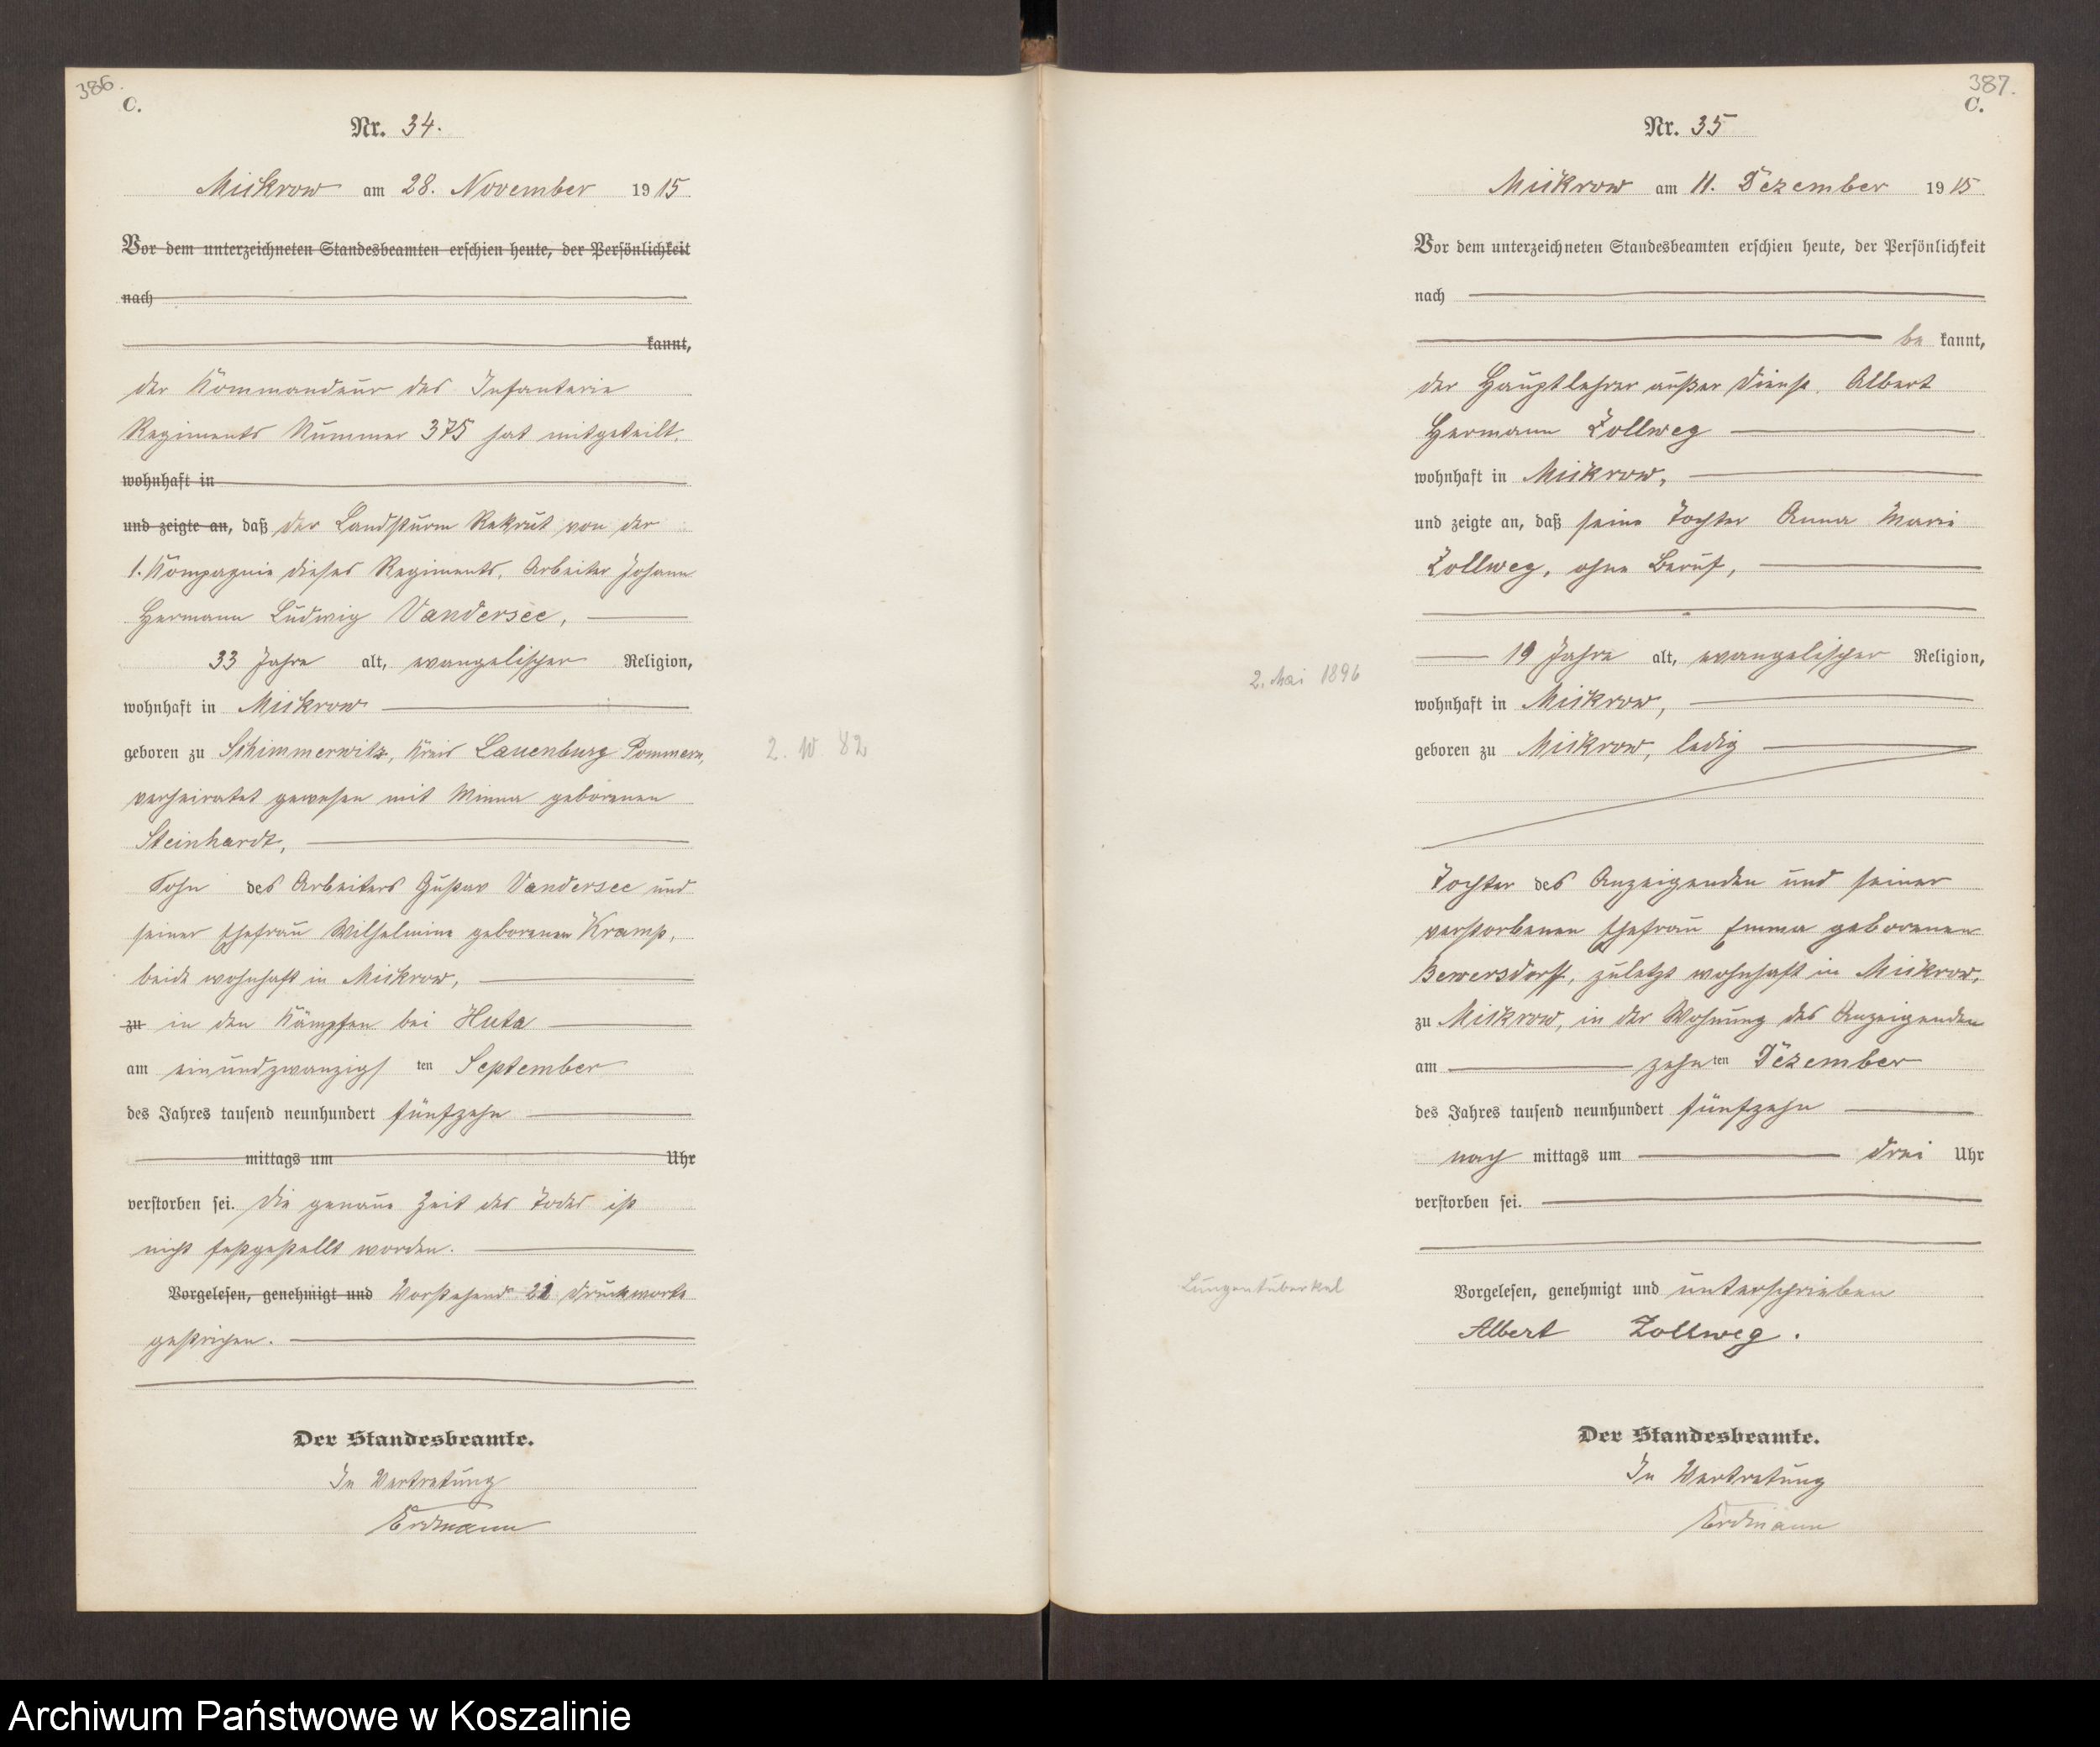 386.
C.
Nr. 34.
Mickrow am 28. November 1915
Vor dem unterzeichneten Standesbeamten erschien heute, der Persönlichkeit
nach
kannt,
der Kommandeur des Infanterie
Regiments Nummer 375 hat mitgeteilt,
wohnhaft in
und zeigte an, daß der Landsturm Rekrut von der
1. Kompagnie dieses Regiments, Arbeiter Johann
Hermann Ludwig Vandersee,
33 Jahre alt, evangelischer Religion,
wohnhaft in Mickrow
geboren zu Schimmerwitz, Kreis Lauenburg Pommern,
2. 10. 82
verheiratet gewesen mit Minna geborenen
Steinhardt,
Sohn des Arbeiters Gustav Vandersee und
seiner Ehefrau Wilhelmine geborenen Kramp,
beide wohnhaft in Mickrow,
zu in den Kämpfen bei Huta
am einundzwanzigsten September
des Jahres tausend neunhundert fünfzehn
mittags um Uhr
verstorben sei. Die genaue Zeit des Todes ist
nicht festgestellt worden.
Vorgelesen, genehmigt und Vorstehend 21 Druckworte
gestrichen.
Der Standesbeamte.
In Vertretung
Erdmann
387.
C.
Nr. 35
Mickrow am 11. Dezember 1915
Vor dem unterzeichneten Standesbeamten erschien heute, der Persönlichkeit
nach
be kannt,
der Hauptlehrer außer Dienst Albert
Hermann Zollweg
wohnhaft in Mickrow,
und zeigte an, daß seine Tochter Anna Marie
Zollweg, ohne Beruf,
19 Jahre alt, evangelischer Religion,
2. Mai 1896
wohnhaft in Mickrow,
geboren zu Mickrow, ledig
Tochter des Anzeigenden und seiner
verstorbenen Ehefrau Emma geborenen
Bewersdorff, zuletzt wohnhaft in Mickrow,
zu Mickrow, in der Wohnung des Anzeigenden
am zehnten Dezember
des Jahres tausend neunhundert fünfzehn
nach mittags um drei Uhr
verstorben sei.
Lungentuberkel
Vorgelesen, genehmigt und unterschrieben
Albert Zollweg.
Der Standesbeamte.
In Vertretung
Erdmann
Archiwum Państwowe w Koszalinie